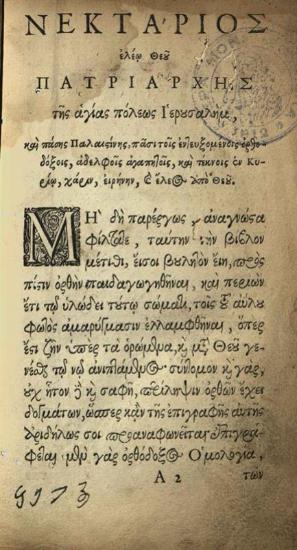 ΝΕΚΤΑΡΙΟΣ
ἐλέῳ Θεοῦ
ΠΑΤΡΙΑΡΧΗΣ
τῆς ἁγίας πόλεως Ἱερουσαλὴμ,
καὶ πάσης Παλαιστίνης, πᾶσι τοῖς ἐντευξομένοις ὀρθο-
δόξοις, ἀδελφοῖς ἀγαπητοῖς, καὶ τέκνοις ἐν Κυ-
ρίῳ, χάριν, εἰρήνην, καὶ ἔλεος ἀπὸ Θεοῦ.
Μὴ δὴ παρέργως, ὦ ἀναγνῶσα
φιλότης, ταύτην τὴν βίβλον
μέτιθι, εἴ σοι βουλητὸν εἴη, πρὸς
πίστιν ὀρθὴν παιδαγωγηθῆναι, καὶ
ἔτι τῷ ὑλώδει τούτῳ σώματι, τοῖς τοῦ ἀΰλου
φωτὸς ἀμαρύγμασιν ἐλλαμφθῆναι, ὅπερ
ἐστὶ ζῆν ὑπὲρ τὰ ὁρώμενα, καὶ μετὰ Θεοῦ γε-
νέσθαι τῷ νῷ σύντομον γὰρ,
οὐχ ἧττον ἢ καὶ σαφῆ, περίληψιν ὀρθῶν ἔχει
δογμάτων, ὥσπερ κἀν τῆς ἐπιγραφῆς αὐτῆς
ἀριδήλως σοι προαναφωνεῖται ἐπιγρά-
φεται μὲν γὰρ ὀρθόδοξος Ὁμολογία,
Α 2 τῶν
9173